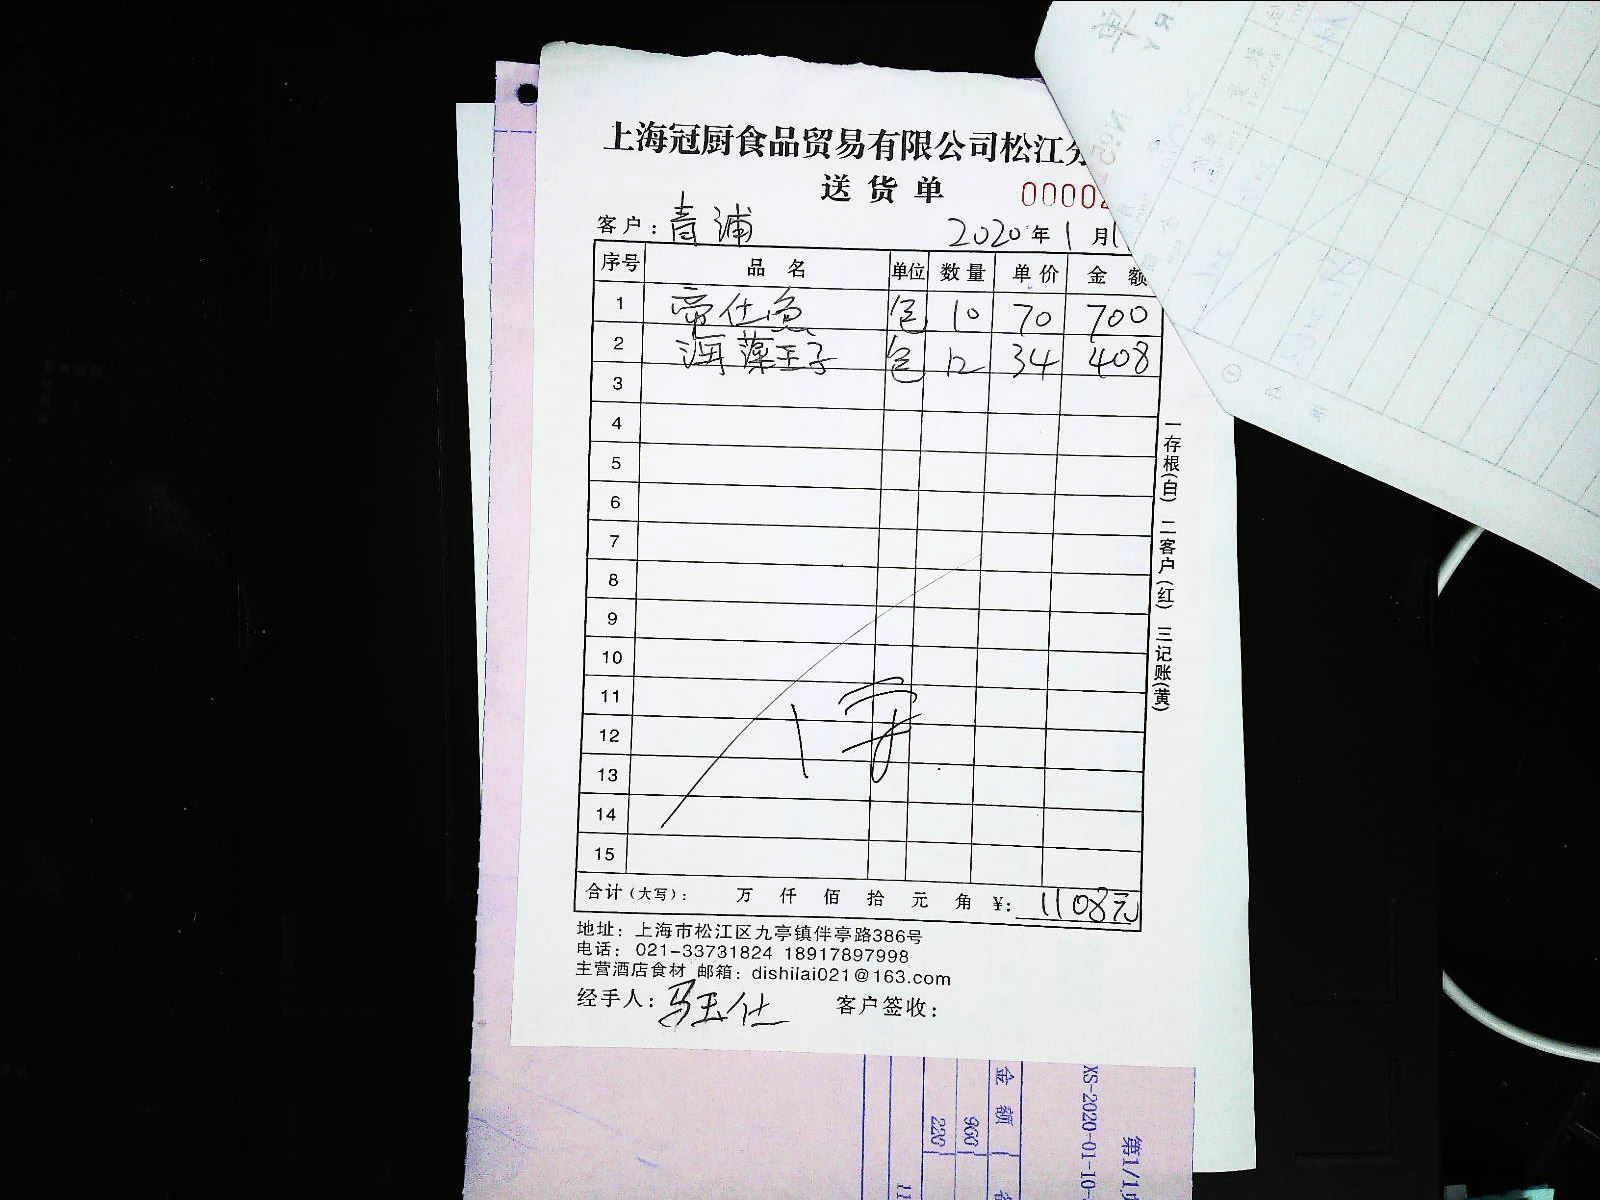 上海冠厨食品贸易有限公司松江
送货单
0000
客户：青浦 2020年1月1
序号 品名 单位 数量 单价 金额
1 帝仕鱼 包 10 70 700
2 海藻王子 包 12 34 408
3
4
5
6
7
8
9
10
11
12
13
14
15
合计（大写）： 万 仟 佰 拾 元 角 ¥：1108元
地址：上海市松江区九亭镇伴亭路386号
电话：021-33731824 18917897998
主营酒店食材 邮箱：dishilai021@163.com
经手人：马玉仕 客户签收：
一存根(白) 二客户(红) 三记账(黄)
金额
900
220
XS-2020-01-10-
第1/1